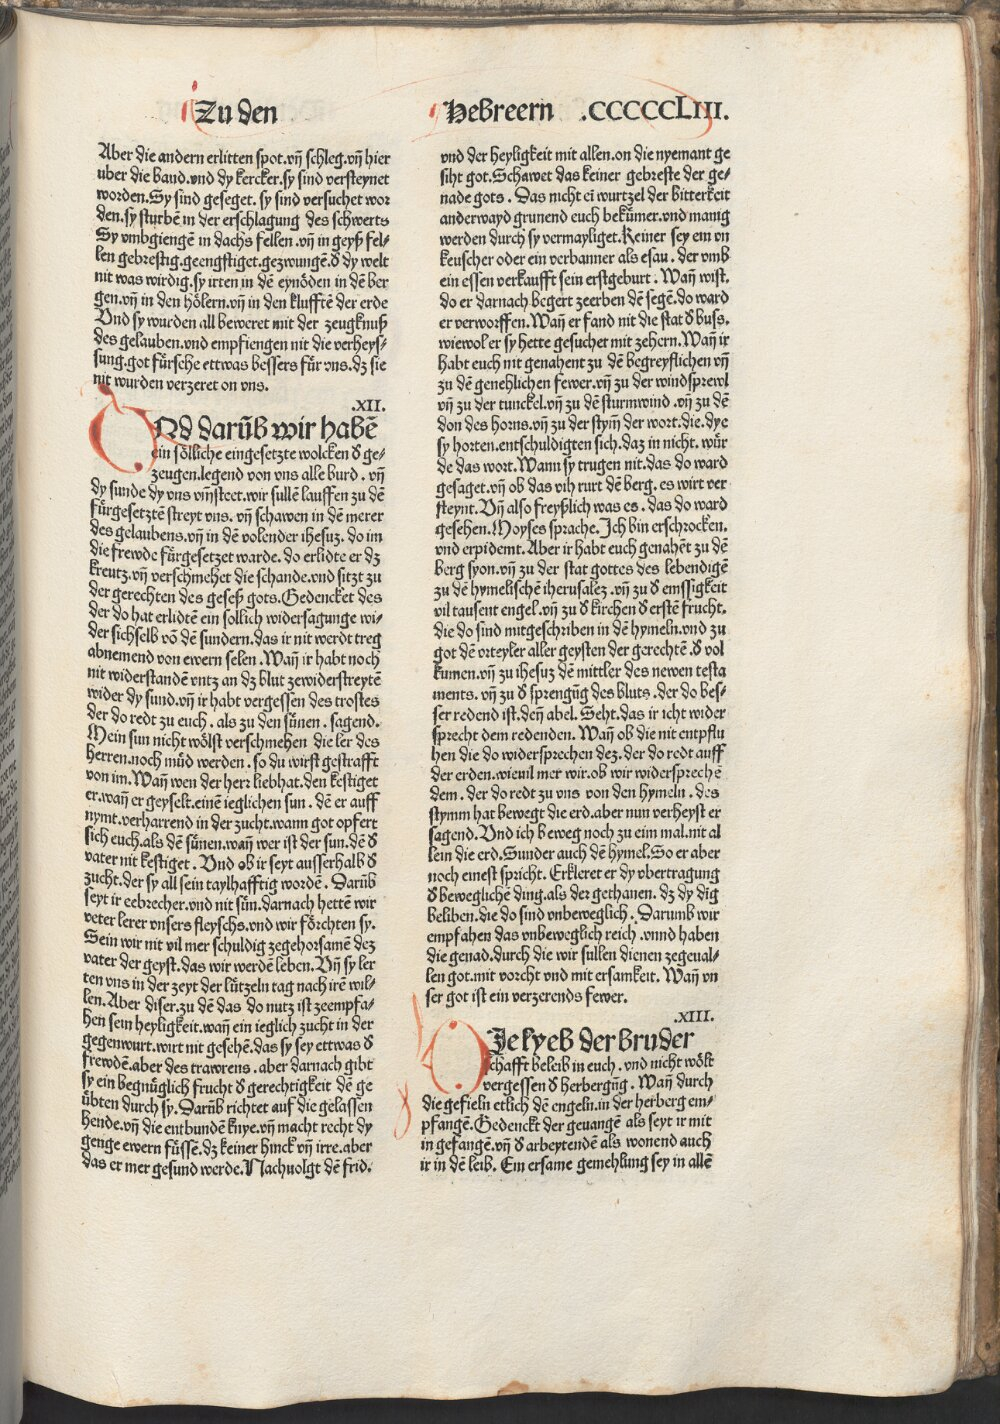 Zu den
Hebreern .CCCCCLIII.
Aber die andern erlitten spot.vñ schleg.vñ hier
uber die band.vnd dy kercker.sy sind versteynet
worden.Sy sind geseget. sy sind versuchet wor
den.sy sturbē in der erschlagung des schwerts
Sy vmbgiengē in dachs fellen .vñ in geyß fel⸗
len gebrestig.geengstiget.gezwungē.ð dy welt
nit was wirdig.sy irten in dē eynöden in dē ber
gen.vñ in den hölern.vñ in den klufftē der erde
Vnd sy wurden all beweret mit der zeugknuß
des gelauben.vnd empfiengen nit die verheys⸗
sung.got fürsche ettwas bessers für vns.dz sie
nit wurden verzeret on vns.
.XII.
Vnd darūb wir habē
ein söliche eingesetzte wolcken ð ge⸗
zeugen.legend von vns alle burd . vñ
dy sunde dy vns vm̄steet.wir sullē lauffen zu dē
fürgesetztē streyt vns. vñ schawen in dē merer
des gelaubens.vñ in dē volender ihesuz. do im
die frewde fürgesetzet warde. do erlidte er dz
kreutz.vñ verschmehet die schande.vnd sitzt zu
der gerechten des geseß gots.Gedencket des
der do hat erlidtē ein sollich widersagunge wi⸗
der sichselb vō dē sundern.das ir nit werdt treg
abnemend von ewern selen .Wañ ir habt noch
nit widerstandē vntz an dz blut zewiderstreytē
wider dy sund.vñ ir habt vergessen des trostes
der do redt zu euch . als zu den sünen . sagend.
Mein sun nicht wölst verschmehen die ler des
herren.noch müd werden . so du wirst gestrafft
von im. Wañ wen der herr liebhat.den kestiget
er.wañ er geyselt.einē ieglichen sun . dē er auff
nymt.verharrend in der zucht.wann got opfert
sich euch.als dē sünen.wañ wer ist der sun.dē ð
vater nit kestiget . Vnd ob ir seyt ausserhalb ð
zucht.der sy all sein taylhafftig wordē . Darūb
seyt ir eebrecher.vnd nit sün.darnach hetten wir
veter lerer vnsers fleyschs.vnd wir förchten sy.
Sein wir nit vil mer schuldig zegehorsamē dez
vater der geyst.das wir werdē leben. Vñ sy ler
ten vns in der zeyt der lützeln tag nach irē wil⸗
len. Aber diser.zu dē das do nutz ist zeempfa⸗
hen sein heyligkeit.wañ ein ieglich zucht in der
gegenwurt.wirt nit gesehē.das sy sey ettwas ð
frewdē.aber des trawrens. aber darnach gibt
sy ein begnüglich frucht ð gerechtigkeit dē ge
übten durch sy. Darūb richtet auf die gelassen
hende.vñ die entbundē knye.vñ macht recht dy
genge ewern füssē.dz keiner hinck vñ irre.aber
das er mer gesund werde.Nachuolgt dē frid.
vnd der heyligkeit mit allen.on die nyemant ge
siht got.Schawet das keiner gebreste der ge⸗
nade gots . Das nicht ei wurtzel der bitterkeit
anderwayd grunend euch bekümer.vnd manig
werden durch sy vermayliget.Keiner sey ein vn
keuscher oder ein verbanner als esau . der vmb
ein essen verkaufft sein erstgeburt . Wañ wist.
do er darnach begert zeerben dē segē.do ward
er verworffen.Wañ er fand nit die stat ð buss.
wiewol er sy hette gesuchet mit zehern. Wañ ir
habt euch nit genahent zu dē begreyflichen vñ
zu dē genehlichen fewer.vñ zu der windsprewl
vñ zu der tunckel.vñ zu dē sturmwind .vñ zu dē
don des horns.vñ zu der stym̄ der wort.die.dye
sy horten.entschuldigten sich.daz in nicht. wür
de das wort. Wann sy trugen nit.das do ward
gesaget.vñ ob das vih rurt dē berg. es wirt ver
steynt. Vñ also freyßlich was es . das do ward
gesehen. Moyses sprache. Ich bin erschrocken.
vnd erpidemt. Aber ir habt euch genahēt zu dē
berg syon.vñ zu der stat gottes des lebendigē
zu dē hymelischē iherusalez .vñ zu ð emssigkeit
vil tausent engel.vñ zu ð kirchen ð erstē frucht.
die do sind mitgeschriben in dē hymeln.vnd zu
got dē vrteyler aller geysten der gerechtē ð vol
kumen.vñ zu ihesuz dē mittler des newen testa
ments. vñ zu ð sprengūg des bluts .der do bes⸗
ser redend ist.deñ abel. Seht.das ir icht wider
sprecht dem redenden. Wañ ob die nit entpflu
hen die do widersprechen dez.der do redt auff
der erden.wieuil mer wir.ob wir widersprechē
dem . der do redt zu vns von den hymeln . des
stymm hat bewegt die erd.aber nun verheyst er
sagend. Vnd ich beweg noch zu eim mal.nit al
lein die erd.Sunder auch dē hymel.So er aber
noch einest spricht. Erkleret er dy vbertragung
ð beweglichē ding.als der gethanen. dz dy dig
beliben.die do sind vnbeweglich . Darumb wir
empfahen das vnbeweglich reich .vnnd haben
die genad.durch die wir sullen dienen zegeual⸗
len got.mit vorcht vnd mit ersamkeit. Wañ vn
ser got ist ein verzerends fewer.
.XIII.
Die lyeb der bruder
schafft beleib in euch . vnd nicht wölt
vergessen ð herbergūg. Wañ durch
die gefieln etlich dē engeln.in der herberg em⸗
pfangē.Gedenckt der geuangē als seyt ir mit
in gefangē.vñ ð arbeytendē als wonend auch
ir in dē leib. Ein ersame gemehlung sey in allē